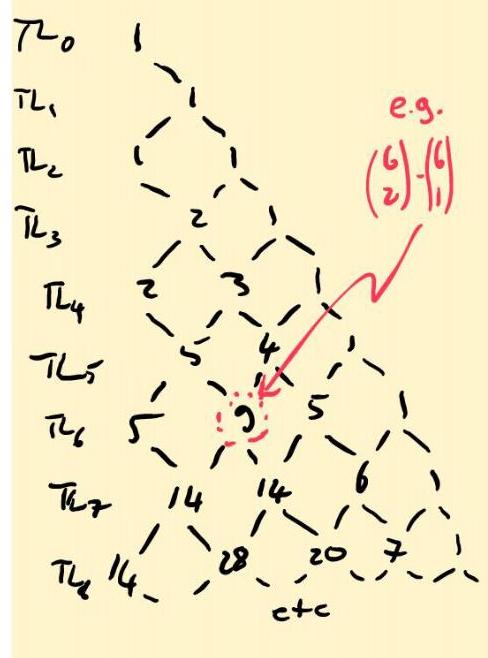 TL₀ 1
TL₁ 1
e.g.
TL₂ 1 1
(6 2) - (6 1)
TL₃ 2 1
TL₄ 2 3 1
TL₅ 5 4 1
TL₆ 5 9 5 1
TL₇ 14 14 6 1
TL₈ 14 28 20 7 1
etc